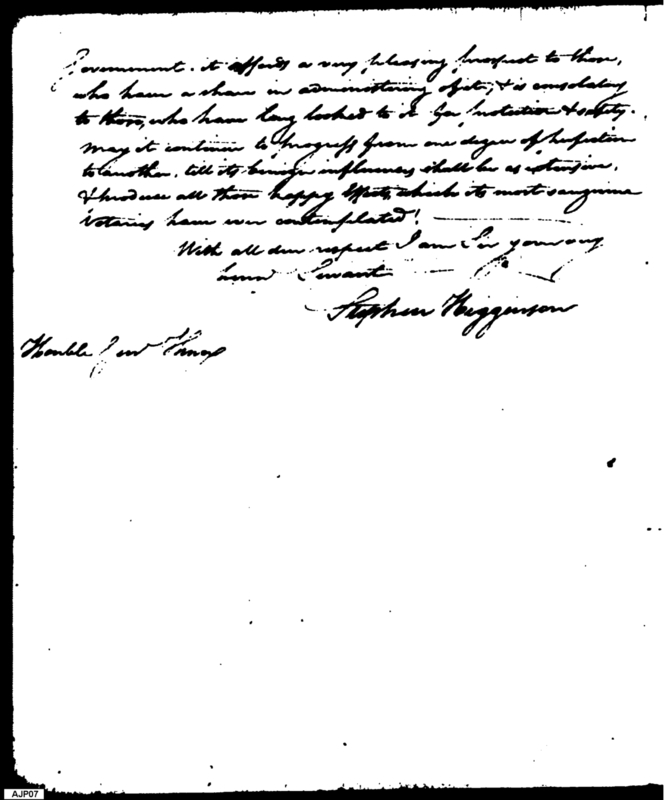 Government. it affords a very pleasing prospect to those,
who have a share in administering of it, & is consolatory
to those, who have long looked to it for protection & safety.
may it continue to progress from one degree of perfection
to another, till its benign influences shall be as extensive,
& produce all those happy Effects, which its most sanguine
Votaries have ever contemplated!
With all due respect I am Sir your very
hum Servant
Stephen Higginson
Honble Knox
AJP07